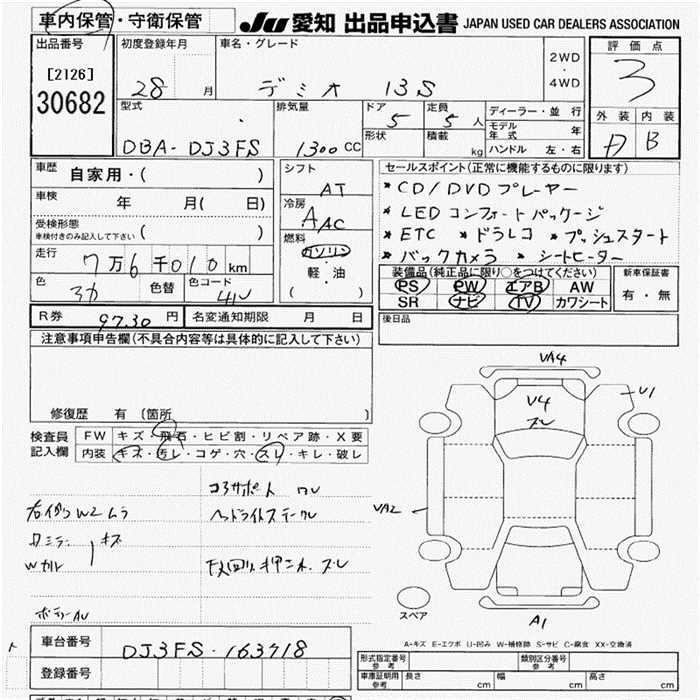 車内保管・守衛保管
JU 愛知 出品申込書 JAPAN USED CAR DEALERS ASSOCIATION
出品番号
[2126]
30682
初度登録年月
28 月
車名・グレード
デミオ 13S
2WD
・
4WD
評価点
3
外装 内装
B
型式
DBA-DJ3FS
排気量
1300 CC
ドア
5
定員
5 人
形状
積載
kg
ディーラー・並行
モデル年式 年
ハンドル 左・右
車歴
自家用・( )
車検
年 月( 日)
受検形態
車検付きのみ記入して下さい ( )
走行
7万6千010km
色
色替
色コード
41V
シフト
AT
冷房
AAC
燃料
ガソリン
軽・油
( )
セールスポイント(正常に機能するものに限ります)
*CD/DVDプレーヤー
*LEDコンフォートパッケージ
*ETC *ドラレコ *プッシュスタート
*バックカメラ *シートヒーター
装備品(純正品に限り○をつけてください)
PS PW エアB AW
SR ナビ TV カワシート
新車保証書
有・無
R券 9730 円
名変通知期限 月 日
後日品
注意事項申告欄(不具合内容等は具体的に記入して下さい)
修復歴 有 〔箇所 〕
検査員
記入欄
FW キズ・飛石・ヒビ割・リペア跡・X要
内装 キズ・汚レ・コゲ・穴・スレ・キレ・破レ
コアサポート
W2 ムラ
ミラー キズ
VA4
V4
U1
VA2
A1
スペア
A-キズ E-エクボ U-凹み W-補修跡 S-サビ C-腐食 XX-交換済
車台番号
DJ3FS-163718
登録番号
形式指定番号
参考
類別区分番号
参考
車庫証明用
参考
長さ cm 幅 cm 高さ cm